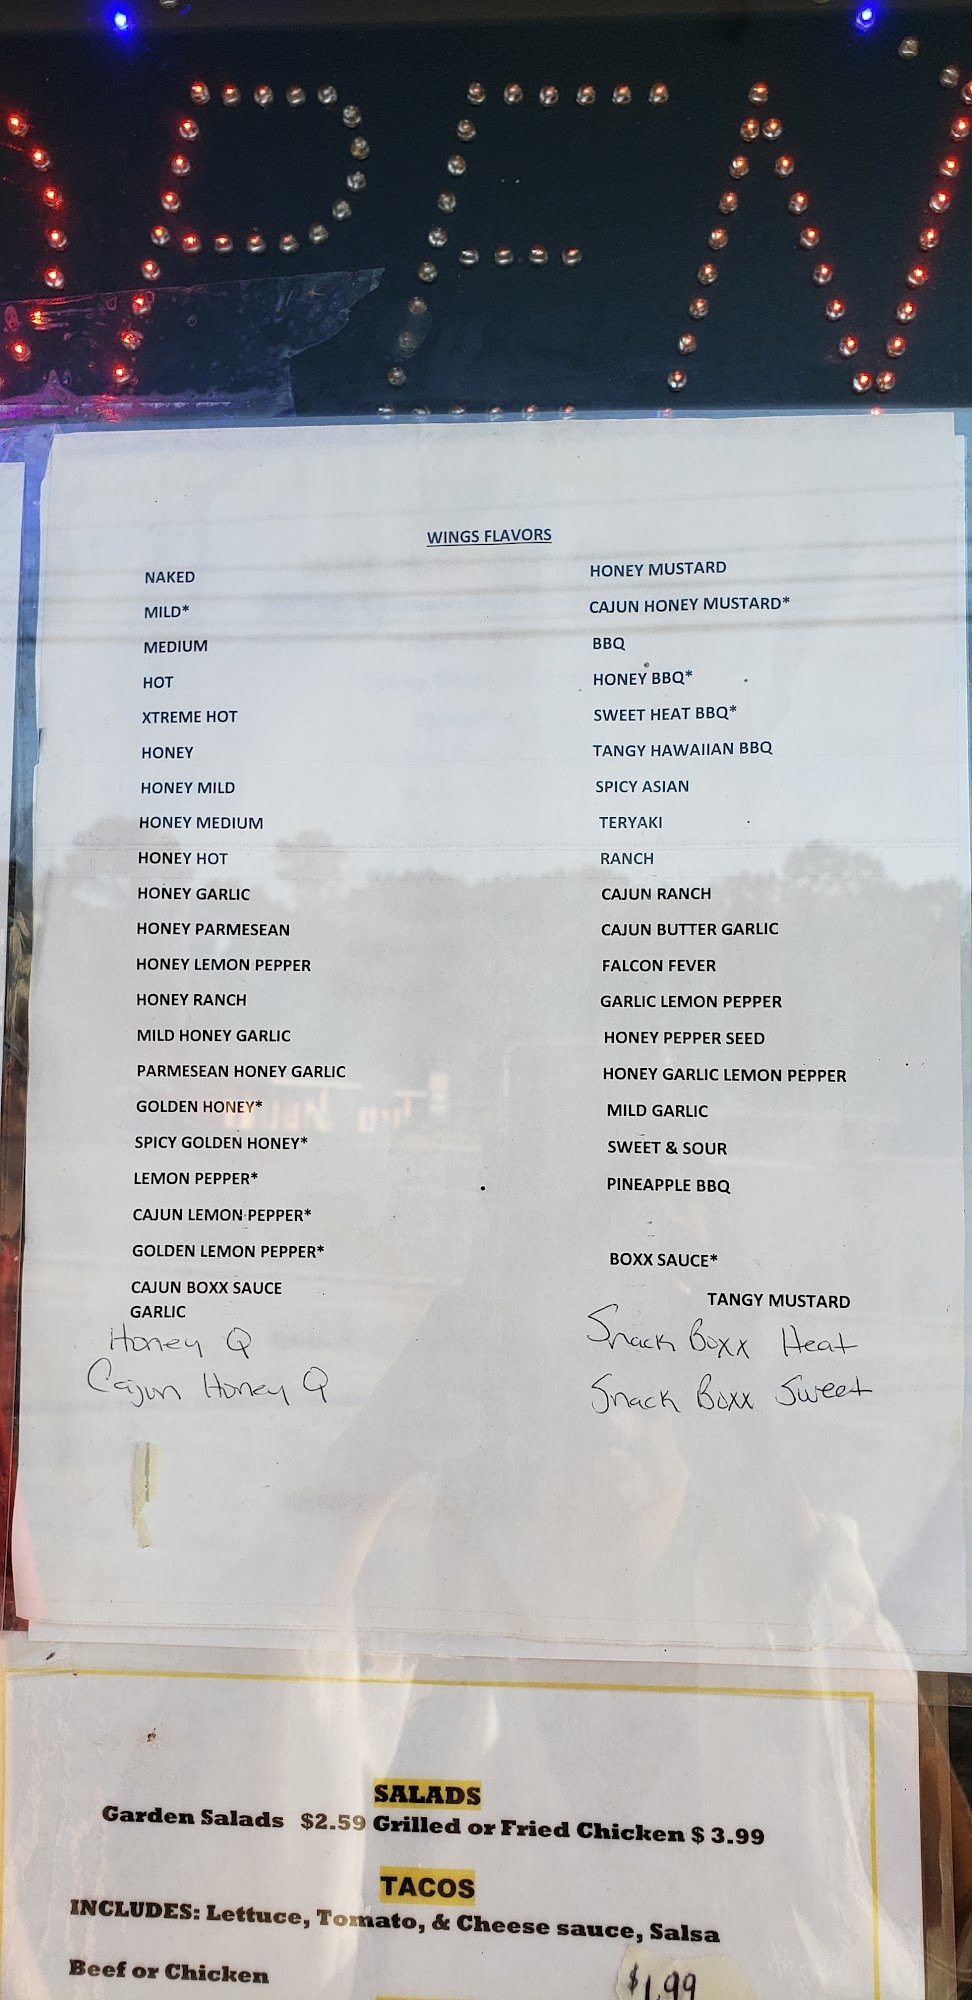 OPEN
WINGS FLAVORS
NAKED
MILD*
MEDIUM
HOT
XTREME HOT
HONEY
HONEY MILD
HONEY MEDIUM
HONEY HOT
HONEY GARLIC
HONEY PARMESEAN
HONEY LEMON PEPPER
HONEY RANCH
MILD HONEY GARLIC
PARMESEAN HONEY GARLIC
GOLDEN HONEY*
SPICY GOLDEN HONEY*
LEMON PEPPER*
CAJUN LEMON PEPPER*
GOLDEN LEMON PEPPER*
CAJUN BOXX SAUCE
GARLIC
Honey Q
Cajun Honey Q
HONEY MUSTARD
CAJUN HONEY MUSTARD*
BBQ
HONEY BBQ*
SWEET HEAT BBQ*
TANGY HAWAIIAN BBQ
SPICY ASIAN
TERYAKI
RANCH
CAJUN RANCH
CAJUN BUTTER GARLIC
FALCON FEVER
GARLIC LEMON PEPPER
HONEY PEPPER SEED
HONEY GARLIC LEMON PEPPER
MILD GARLIC
SWEET & SOUR
PINEAPPLE BBQ
BOXX SAUCE*
TANGY MUSTARD
Snack Boxx Heat
Snack Boxx Sweet
SALADS
Garden Salads $2.59 Grilled or Fried Chicken $ 3.99
TACOS
INCLUDES: Lettuce, Tomato, & Cheese sauce, Salsa
Beef or Chicken $1.99